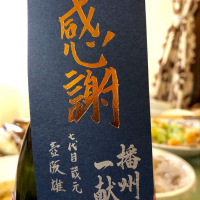 感謝
播州
一献
七代目蔵元
壺阪雄一